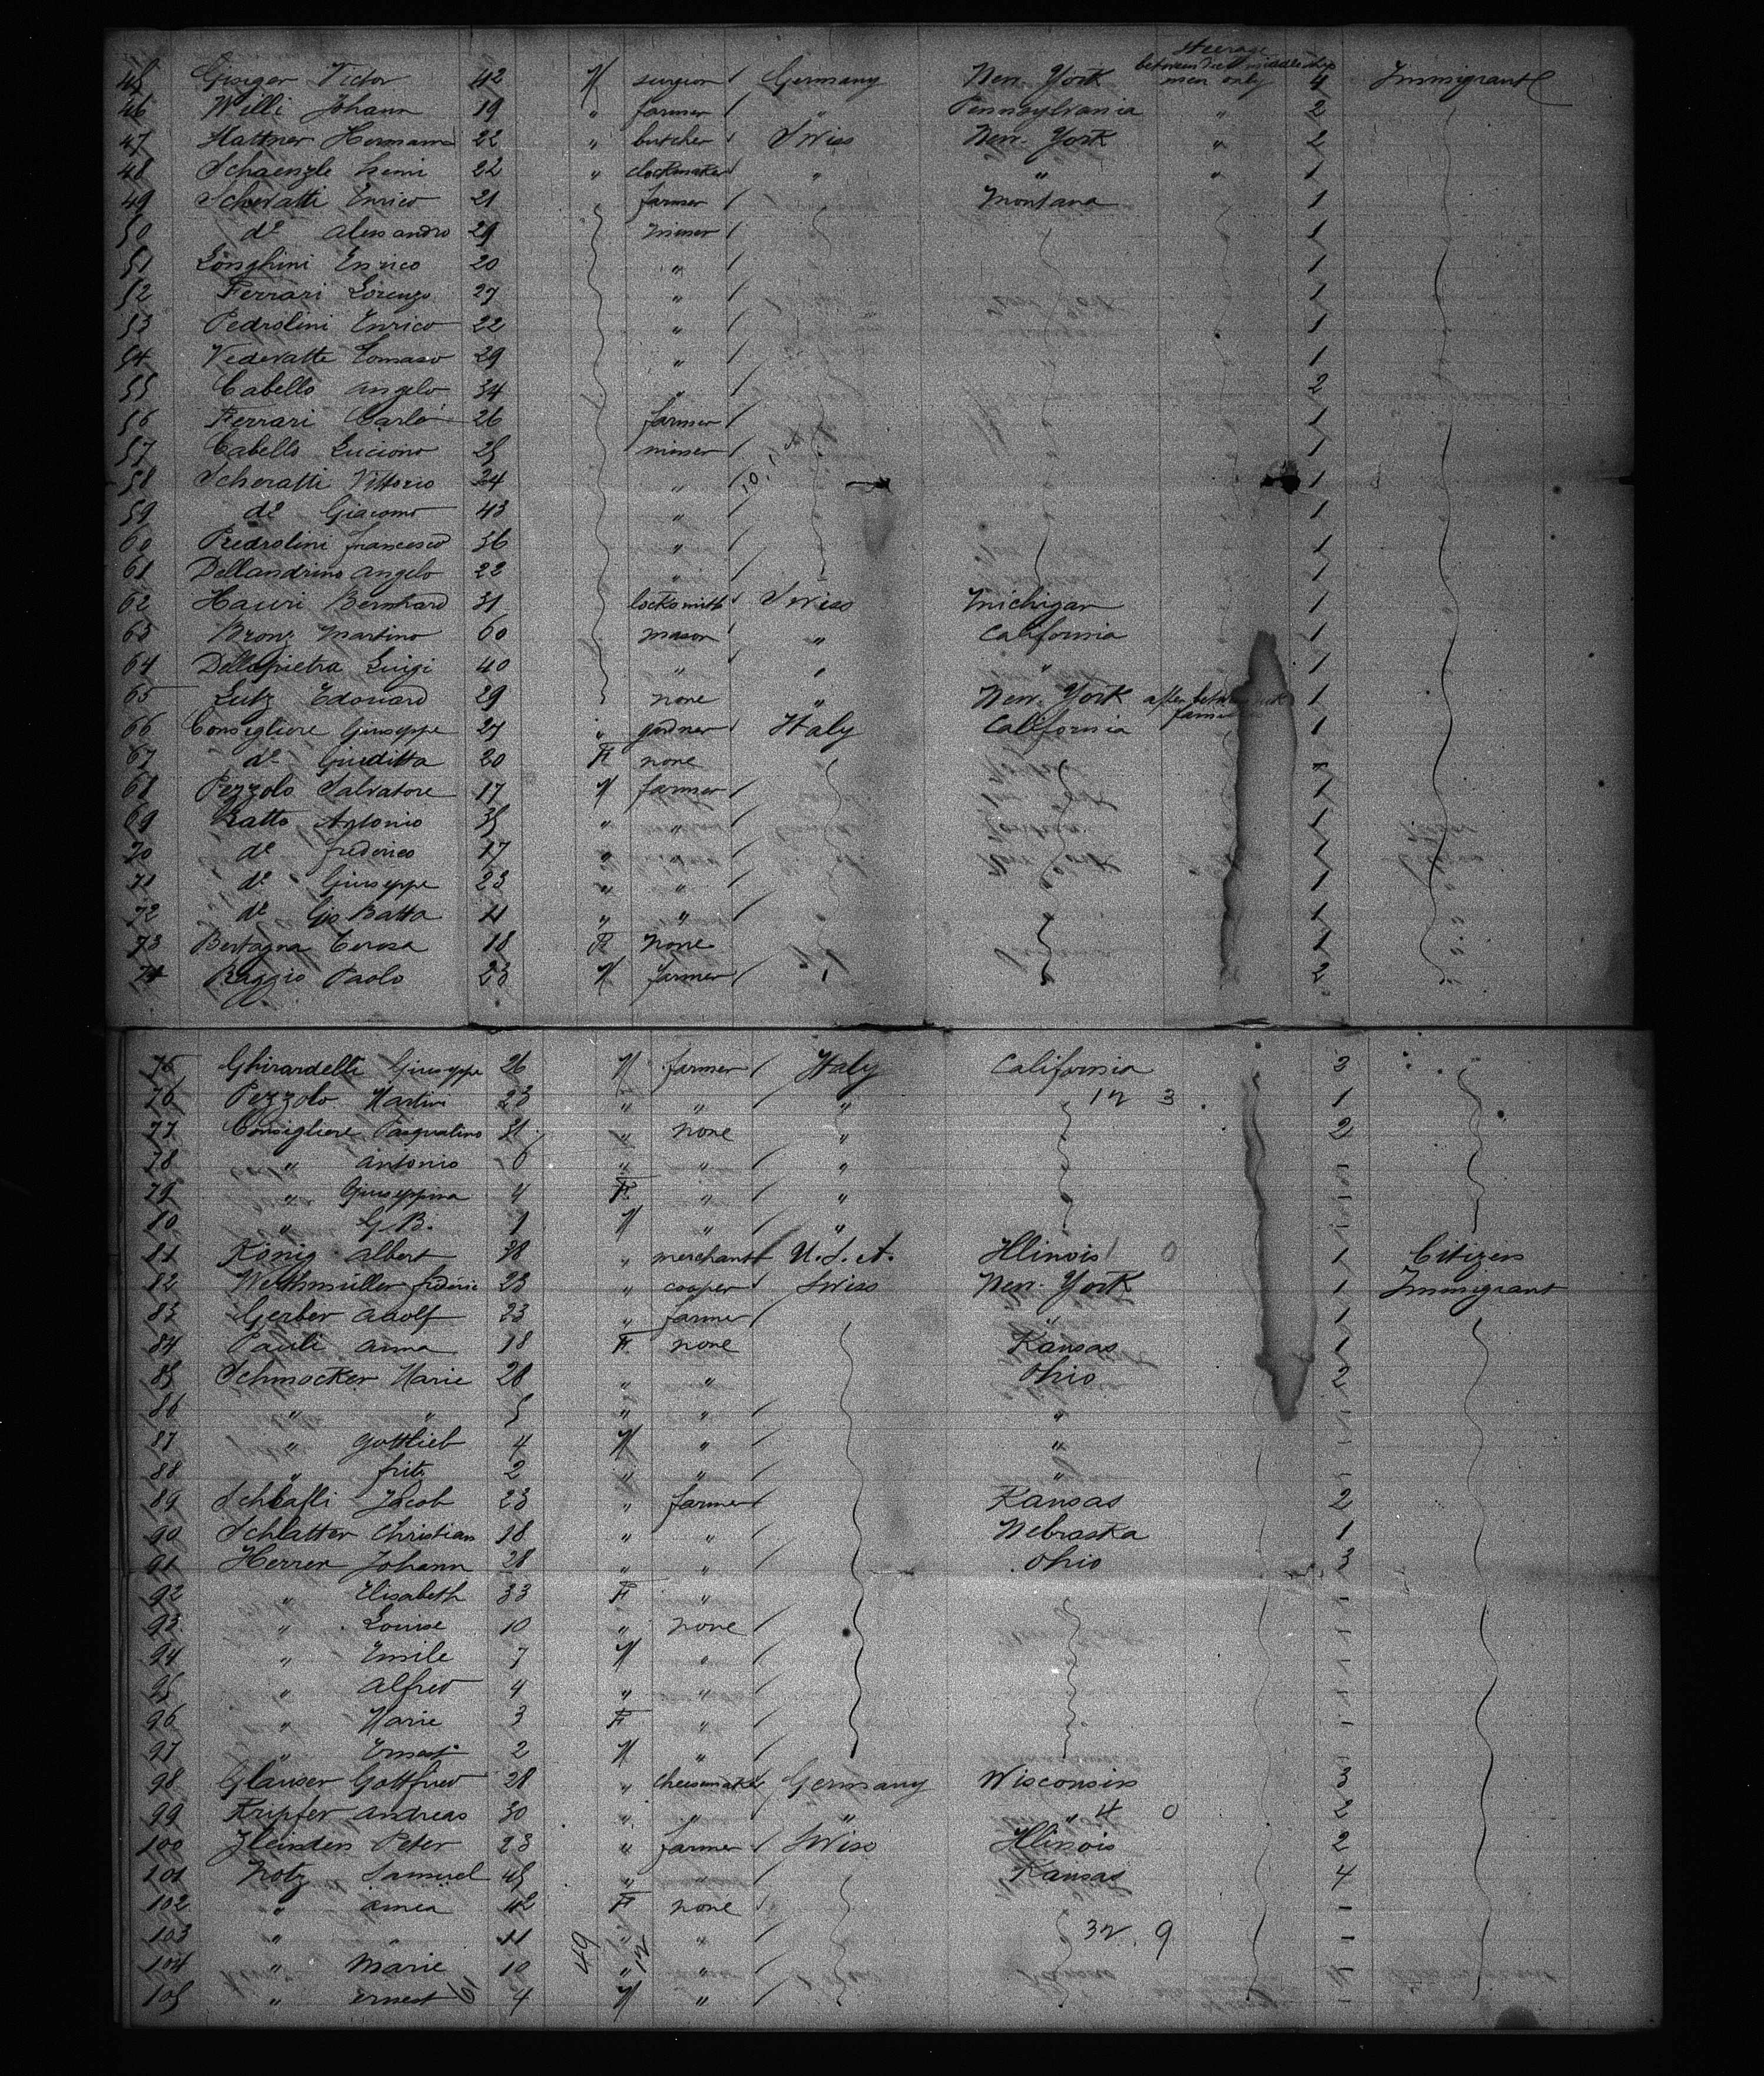 steerage
between deck middle ship
45 Ginger Victor 42 M surgeon Germany New-York men only 4 Immigrant
46 Willi Johann 19 " farmer " Pennsylvania " 2
47 Hattner Hermann 22 " butcher Swiss New-York " 2
48 Schaenzle 22 " clockmaker " " " 1
49 Scheratti Enrico 21 farmer Montana 1
50 do Alessandro 29 miner 1
51 Longhini Enrico 20 " 1
52 Ferrari Lorenzo 27 " 1
53 Pedrolini Enrico 22 " 1
54 Vederatte Tomaso 29 " 1
55 Cabello Angelo 34 " 2
56 Ferrari Carlo 26 farmer 1
57 Cabello Luciono 25 miner 1
58 Scheratti Vittorio 24 " 1
59 do Giacomo 43 " 1
60 Predrolini Francesco 36 " 1
61 Dellandrino Angelo 22 " 1
62 Hauri Bernhard 31 locksmith Swiss Michigan 1
63 Bronz Martino 60 mason " California 1
64 Dellapietra Luigi 40 " " " 1
65 Lutz Edouard 29 none " New-York 1
66 Consigliere Giuseppe 27 " gardner Italy California 1
67 do Giuditta 20 F none "
68 Pezzolo Salvatore 17 M farmer 1
69 Ratto Antonio 35 " " 1
70 do Frederico 17 " " 1
71 do Giuseppe 23 " " 1
72 do Gio Batta 11 " " 1
73 Bertagna Teresa 18 F none 1
74 Raggio Paolo 23 M farmer 2
75 Ghirardelli Giuseppe 26 M farmer Italy California 3
76 Pezzolo Martini 23 " " " 12 3 1
77 Consigliere Pasqualino 31 " none " 2
78 " Antonio 6 " " " -
79 " Giuseppina 4 F " " -
80 " G. B. 1 M " " -
81 König Albert 38 " merchant U.S.A. Illinois 0 1 Citizen
82 Wuthmüller Frederic 23 " cooper Swiss New-York 1 Immigrant
83 Gerber Adolf 23 " farmer " 1
84 Pauli Anna 18 F none Kansas 1
85 Schmocker Marie 28 " " Ohio 2
86 " " 5 " " " -
87 " Gottlieb 4 M " " -
88 " Fritz 2 " " " -
89 Schlafli Jacob 23 " farmer Kansas 2
90 Schlatter Christian 18 " " Nebraska 1
91 Herren Johann 28 " " Ohio 3
92 " Elisabeth 33 F " -
93 " Louise 10 " none -
94 " Emile 7 M " -
95 " Alfred 4 " " -
96 " Marie 3 F " -
97 " Ernest 2 M " -
98 Glauser Gottfried 28 " cheesemaker Germany Wisconsin 3
99 Kripfer Andreas 30 " " " " 4 0 2
100 Zleinden Peter 23 " farmer Swiss Illinois 2
101 Notz Samuel 45 " " Kansas 4
102 " 42 F none -
103 " " 11 " " 32 9 -
104 " Marie 10 " " -
105 " Ernest 4 M " -
61 49 12